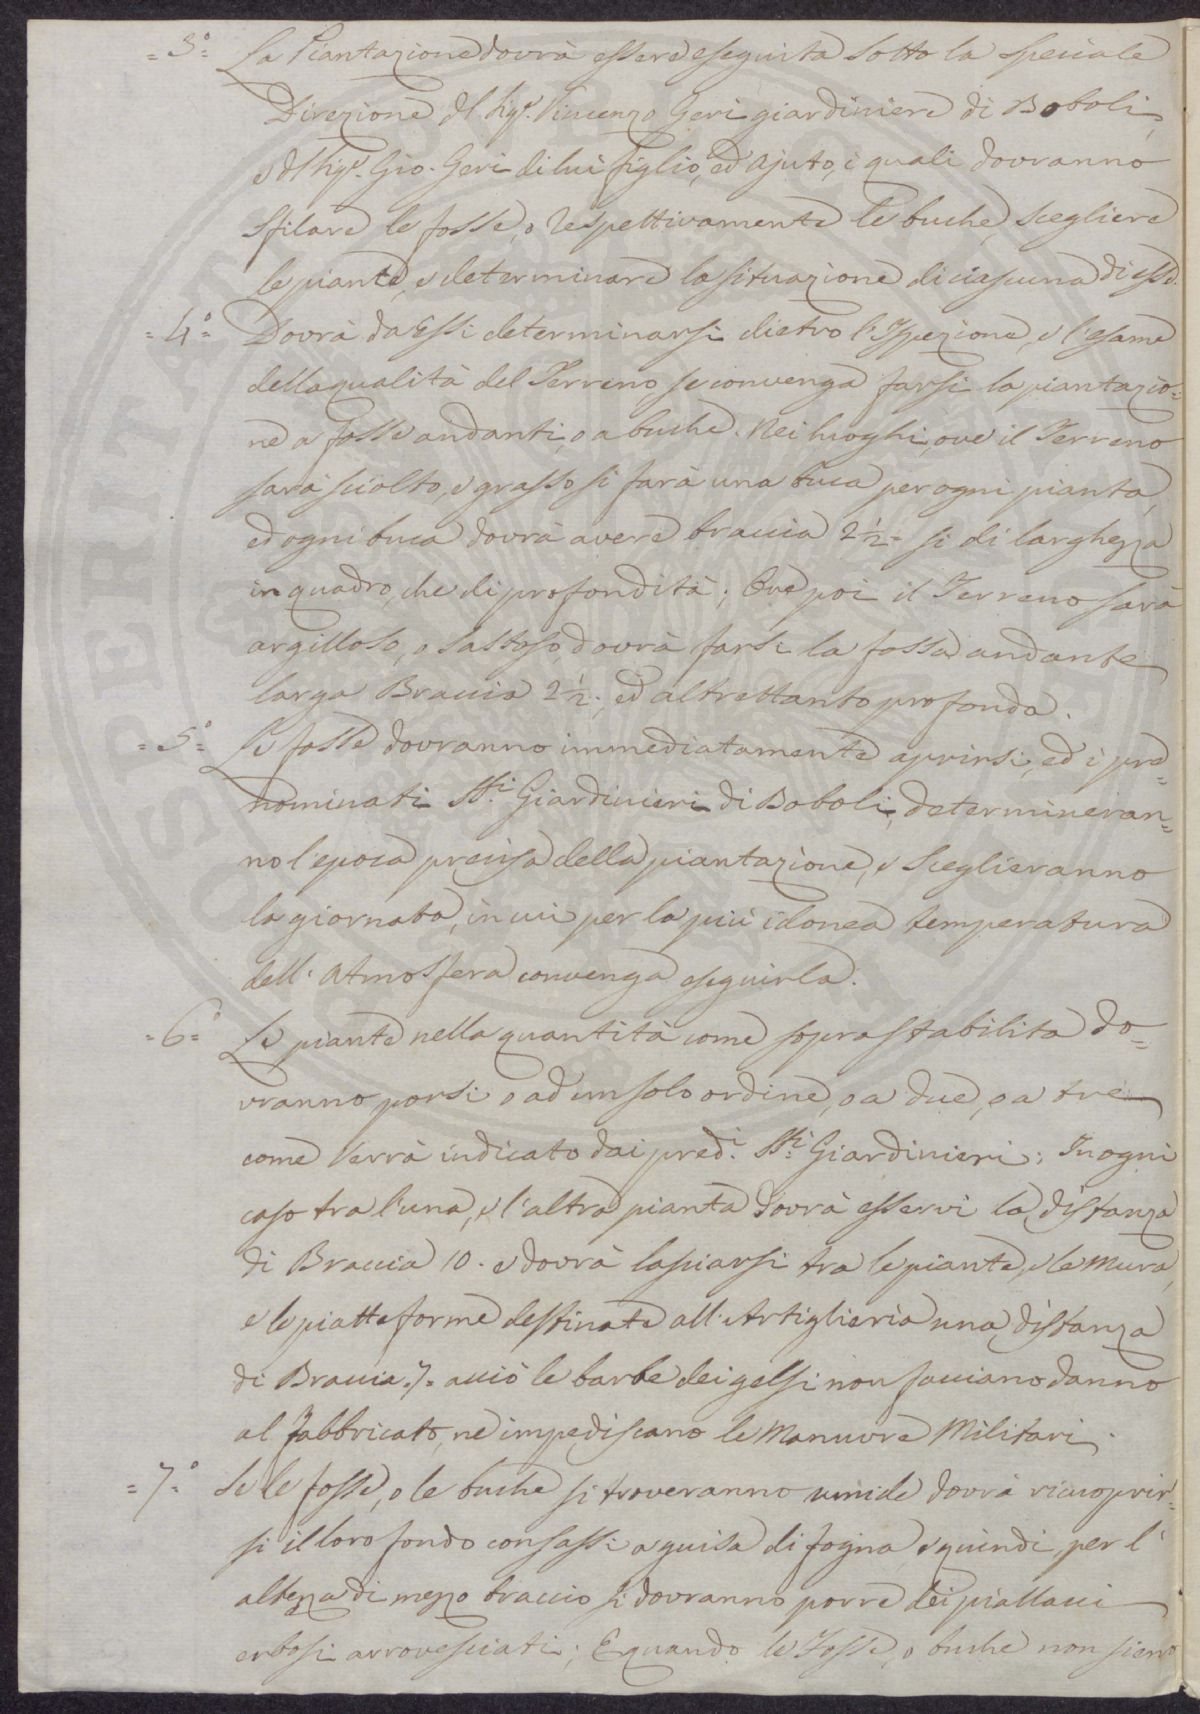 =3°= La Piantazione dovrà essere eseguita sotto la speciale
Direzione del Sigr. Vincenzo Geri giardiniere di Boboli,
e del Sigr. Gio. Geri di lui figlio, ed ajuto, i quali dovranno
sfilare le fosse, o respettivamente le buche, scegliere
le piante, e determinare la situazione di ciascuna di esse.
=4°= Dovrà da Essi determinarsi dietro l'Ispezione, e l'esame
della qualità del Terreno se convenga farsi la piantazio=
ne a fosse andanti, o a buche. Nei luoghi, ove il Terreno
sarà sciolto, e grasso si farà una buca per ogni pianta,
ed ogni buca dovrà avere braccia 2½= sì di larghezza
in quadro, che di profondità; Ove poi il Terreno sarà
argilloso, o sassoso, dovrà farsi la fossa andante
larga Braccia 2½., ed altrettanto profonda.
=5°= Le fosse dovranno immediatamente aprirsi, ed i pre=
nominati SSri. Giardinieri di Boboli, determineran=
no l'epoca precisa della piantazione, e sceglieranno
la giornata, in cui per la più idonea temperatura
dell'Atmosfera convenga eseguirla.
=6°= Le piante nella quantità come sopra stabilita do=
vranno porsi o ad un solo ordine, o a due, o a tre
come verrà indicato dai predi. SSri. Giardinieri; In ogni
caso tra l'una, e l'altra pianta dovrà esservi la distanza
di Braccia 10. e dovrà lasciarsi tra le piante, e le Mura,
e le piatteforme destinate all'Artiglieria una distanza
di Braccia 7= acciò le barbe dei gelsi non facciano danno
al Fabbricato, ne impediscano le Manuvre Militari.
=7°= Se le fosse, o le buche si troveranno umide dovrà ricuoprir=
si il loro fondo con sassi a guisa di fogna, e quindi per l'
altezza di mezzo braccio si dovranno porre dei piallacci
erbosi arrovesciati; E quando le Fosse, o buche non sieno